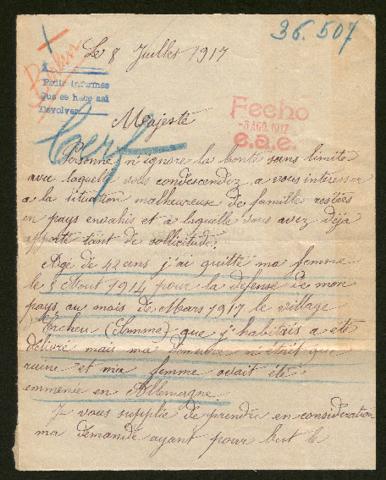 36.507
Le 8 Juillet 1917
Berlin
Pedir informes
Que se haga así
Devolver
Fecho
-3 AGO. 1917
e.a.e.
Majesté
Personne n'ignore la bonté sans limite
avec laquelle vous condescendez a vous interesser
a la situation malheureuse de familles restées
en pays envahis et a laquelle vous avez déja
apporté tant de sollicitude.
Agé de 42 ans j'ai quitté ma femme
le 3 Aout 1914 pour la defense de mon
pays au mois de Mars 1917 le village
Ercheu (Somme) que j'habitais a été
délivré mais ma demeure n'était que
ruine et ma femme avait été
emmenée en Allemagne
Je vous supplie de prendre en consideration
ma demande ayant pour but le